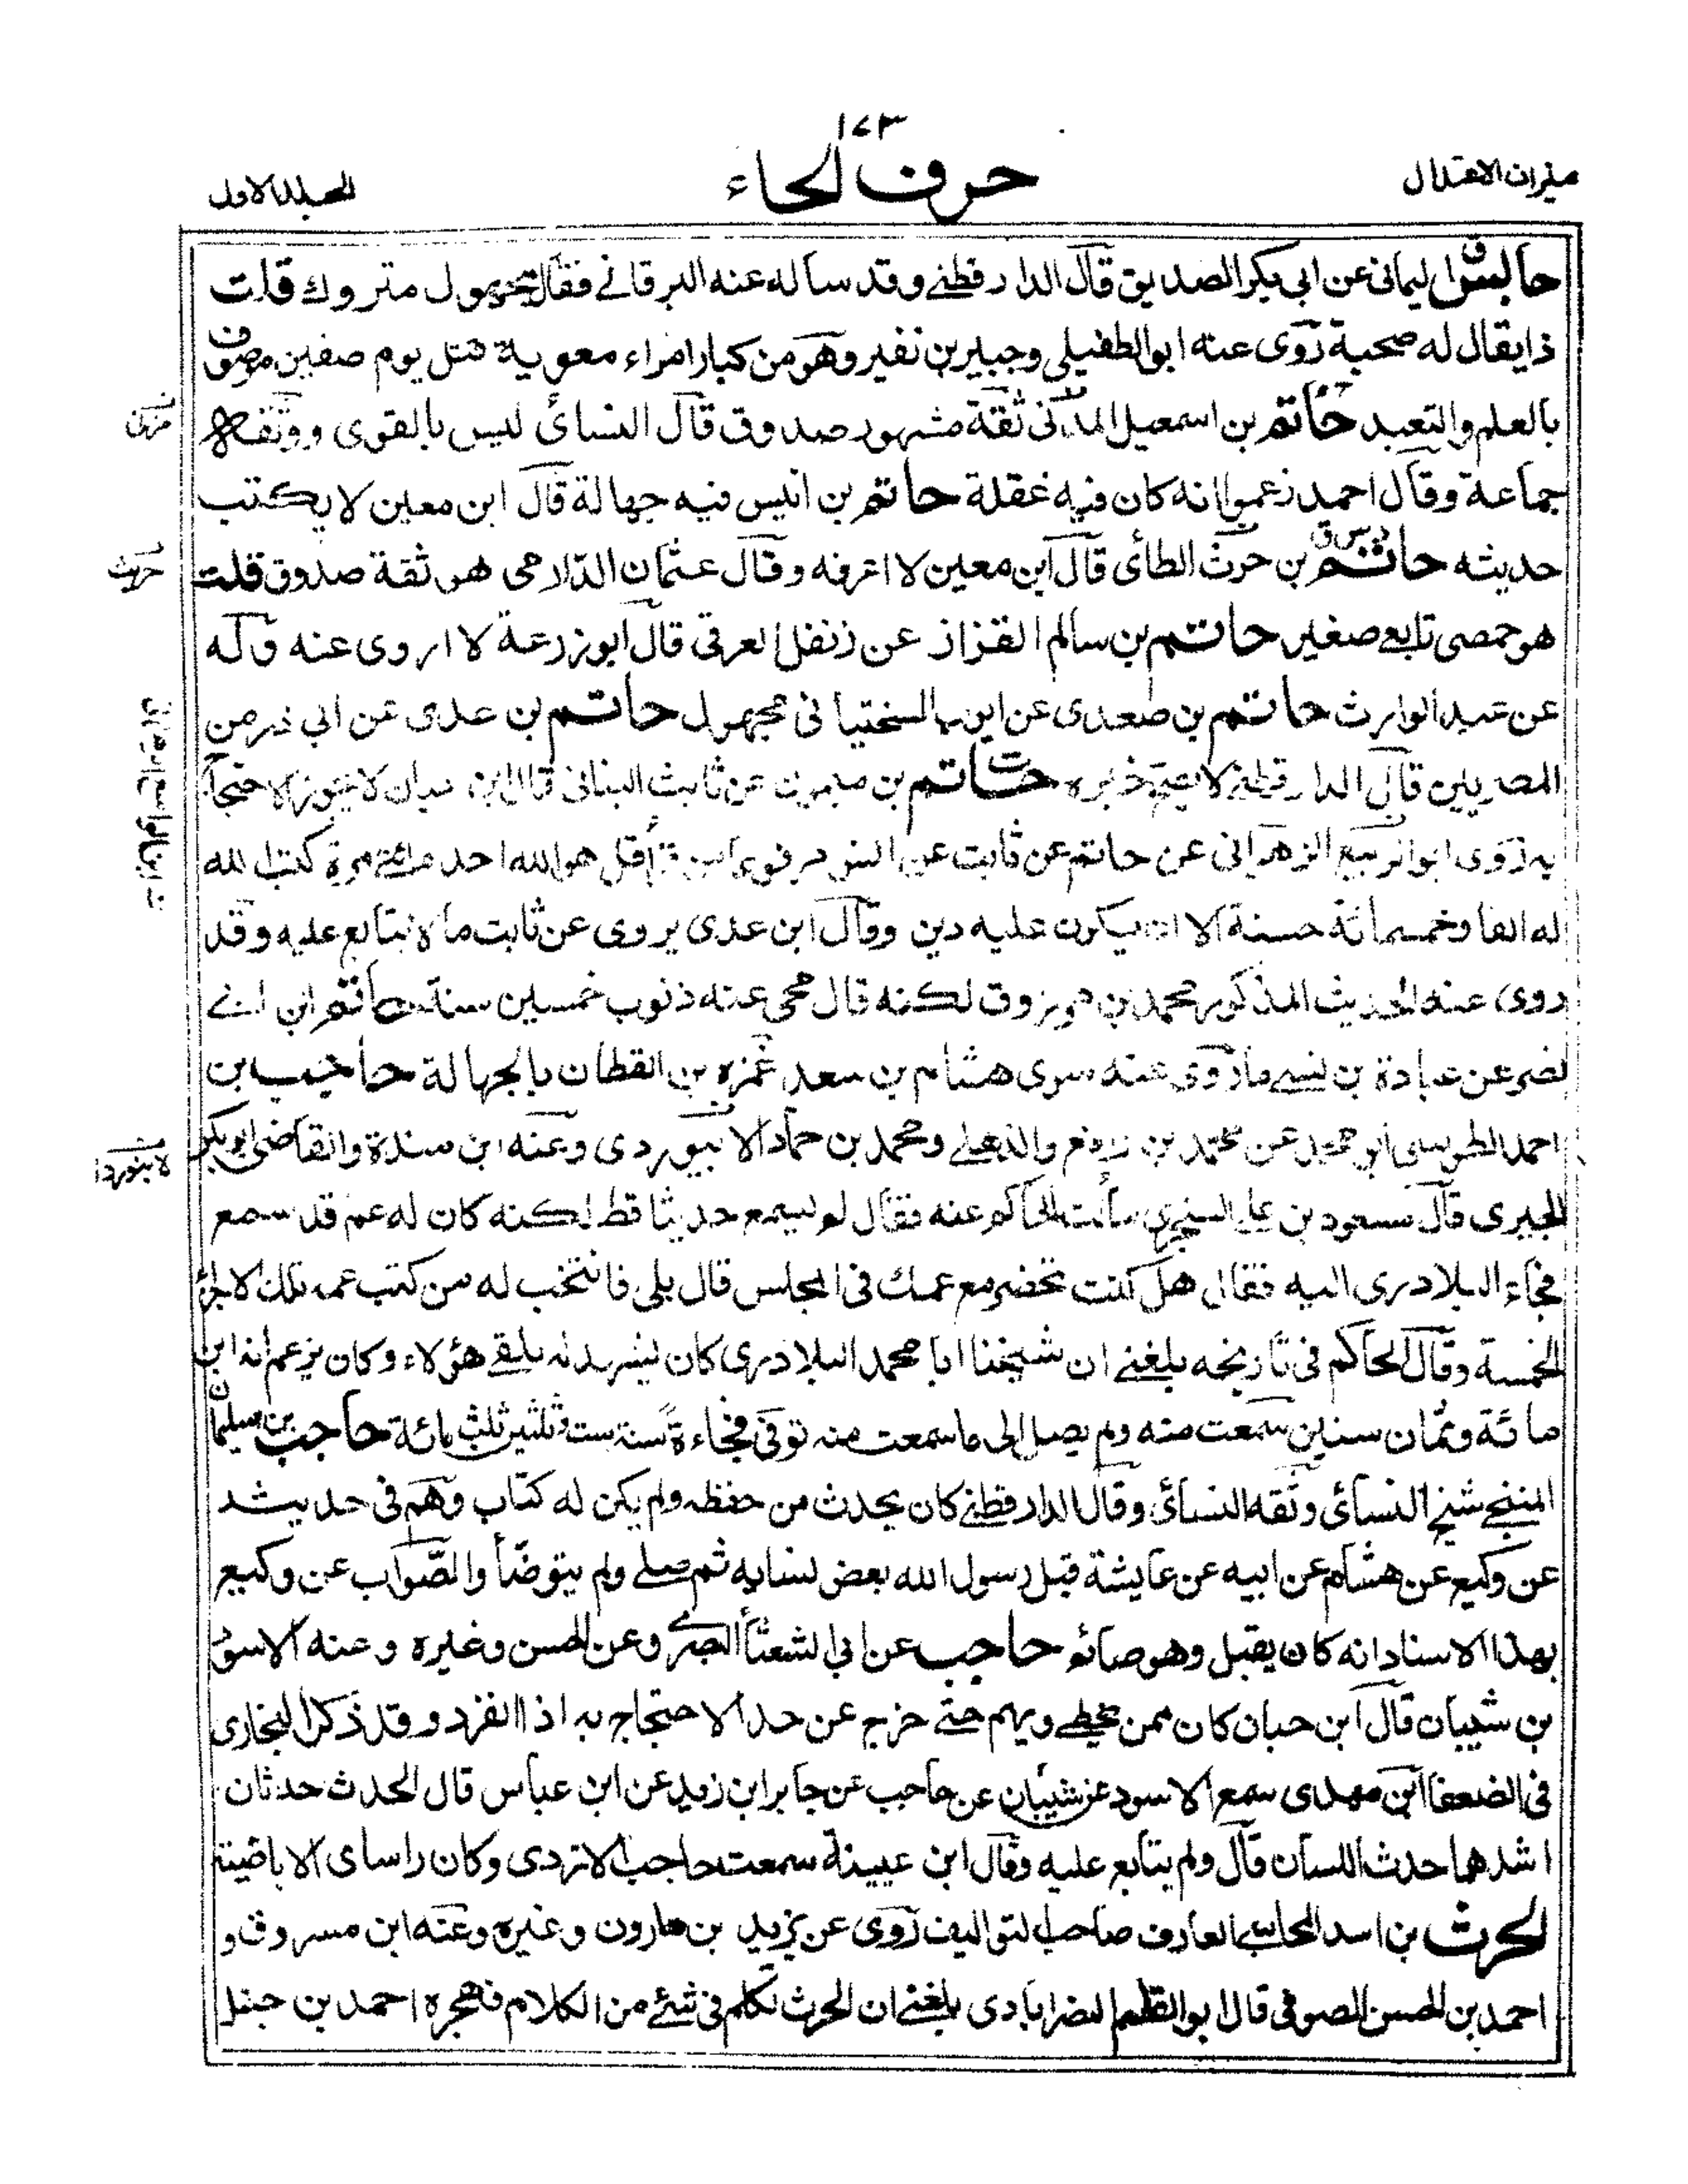 ١٧٣
ميزان الاعتدال
حرف الحاء
المجلد الاول
حابس اليمانى عن ابى بكر الصديق قال الدارقطنے وقد ساله عنه البرقانے فقال مجهول متروك قلت
ذا يقال له صحبة روى عنه ابو الطفيل وجبير بن نفير وهو من كبار امراء معوية قتل يوم صفين موصوف
بالعلم والتعبد حاتم بن اسمعيل المدنى ثقة مشهور صدوق قال النسائى ليس بالقوى ووثقه
جماعة وقال احمد زعموا انه كان فيه غفلة حاتم بن انيس فيه جهالة قال ابن معين لا يكتب
حديثه حاتم بن حرث الطائى قال ابن معين لا اعرفه وقال عثمان الدارمى هو ثقة صدوق قلت
هو حمصى تابع صغير حاتم بن سالم القزاز عن زنفل العرقى قال ابو زرعة لا اروى عنه وله
عن عبد الوارث حاتم بن صعدى عن ايوب السختيانى مجهول حاتم بن عدى عن ابى ذر من
المصريين قال الدارقطنے لا يصح خبره حاتم بن ميمون عن ثابت البنانى قال ابن حبان لا يجوز الاحتجاج
به روى ابو الربيع الزهرانى عن حاتم عن ثابت عن انس مرفوعا من قرأ قل هو الله احد مائتے مرة كتب الله
له الفا وخمسمائة حسنة الا ان يكون عليه دين وقال ابن عدى يروى عن ثابت ما لا يتابع عليه وقد
روى عنه الحديث المذكور محمد بن مرزوق لكنه قال محى عنه ذنوب خمسين سنة حاتم ابن ابے
نصر عن عبادة بن نسے ما روى عنه سوى هشام بن سعد غمزه بن القطان بالجهالة حاجب بن
احمد الطوسى ابو محمد عن محمد بن رافع والذهلے ومحمد بن حماد الابيوردى وعنه ابن مندة والقاضى ابو بكر
الحيرى قال مسعود بن على السنجرى سألت الحاكم عنه فقال لم يسمع حديثا قط لكنه كان له عم قد سمع
فجاء البلاذرى اليه فقال هل كنت تحضر مع عمك فى المجلس قال بلى فانتخب له من كتب عمه تلك الاجزاء
الخمسة وقال الحاكم فى تاريخه بلغنے ان شيخنا ابا محمد البلاذرى كان يشهد له بلقے هؤلاء وكان يزعم انه ابن
مائة وثمان سنين سمعت منه ولم يصل الى ما سمعت منه توفى فجاءة سنة ست وثلثين ثلث مائة حاجب بن سليمان
المنبجے شيخ النسائى وثقه النسائى وقال الدارقطنے كان يحدث من حفظه ولم يكن له كتاب وهم فى حديثه
عن وكيع عن هشام عن ابيه عن عايشة قبل رسول الله بعض نسايه ثم صلے ولم يتوضأ والصواب عن وكيع
بهذا الاسناد انه كان يقبل وهو صائم حاجب عن ابى الشعثأ البصرے وعن الحسن وغيره وعنه الاسود
بن شيبان قال ابن حبان كان ممن يخطے ويهم حتے خرج عن حد الاحتجاج به اذا انفرد وقد ذكر البخارى
فى الضعفا ابن مهدى سمع الاسود عن شيبان عن حاجب عن جابر ابن زيد عن ابن عباس قال الحدث حدثان
اشدهما حدث اللسان قال ولم يتابع عليه وقال ابن عيينة سمعت حاجب الازدى وكان راسا فى الاباضية
الحرث بن اسد المحاسبے العارف صاحب التواليف روى عن يزيد بن هارون وغيره وعنه ابن مسروق و
احمد بن الحسن الصوفى قال ابو القاسم النصرابادى بلغنے ان الحرث تكلم فى شئے من الكلام فهجره احمد بن حنبل